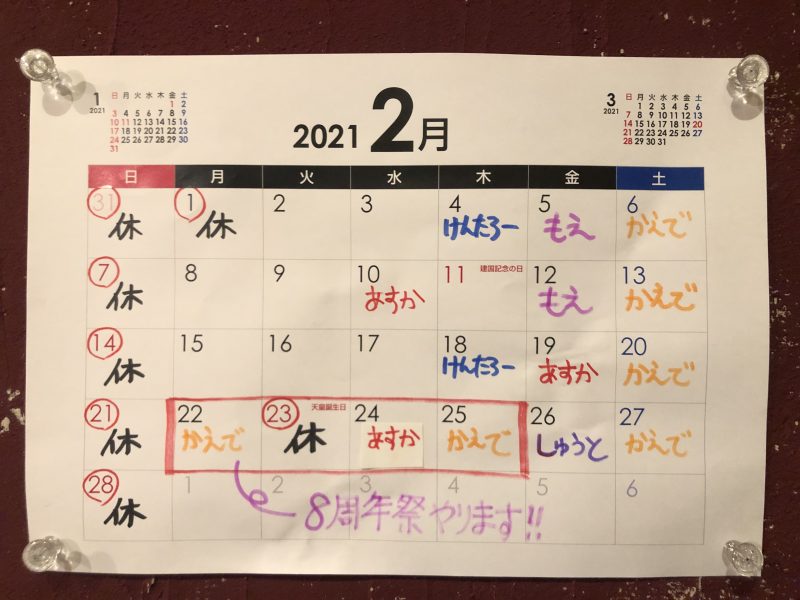 1
2021
日 月 火 水 木 金 土
1 2
3 4 5 6 7 8 9
10 11 12 13 14 15 16
17 18 19 20 21 22 23
24 25 26 27 28 29 30
31
2021 2月
3
2021
日 月 火 水 木 金 土
1 2 3 4 5 6
7 8 9 10 11 12 13
14 15 16 17 18 19 20
21 22 23 24 25 26 27
28 29 30 31
日 月 火 水 木 金 土
31 1 2 3 4 5 6
休 休 けんたろー もえ かえで
7 8 9 10 11 建国記念の日 12 13
休 あすか もえ かえで
14 15 16 17 18 19 20
休 けんたろー あすか かえで
21 22 23 天皇誕生日 24 25 26 27
休 かえで 休 あすか かえで しゅうと かえで
28 1 2 3 4 5 6
休
8周年祭やります!!